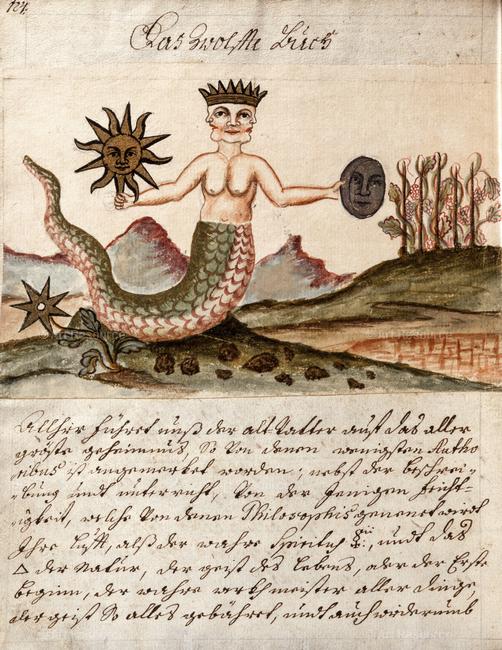 124.
Das zwolffte Buch
Allhier führet unß der alte Vatter auff das aller
gröste geheimnus, So von denen wenigsten Autho
ribus ist angemerket worden; nebst der beschrei-
bung undt unterricht, von der jenigen feicht-
igkeit, welche von denen Philosophis genenet wird
Ihre lufft, alß der wahre , undt das
△ der Natur, der geist des lebens, oder der Erste
beginn, der wahre werkmeister aller dinge,
der geist So alles gebähret, undt auch widerumb